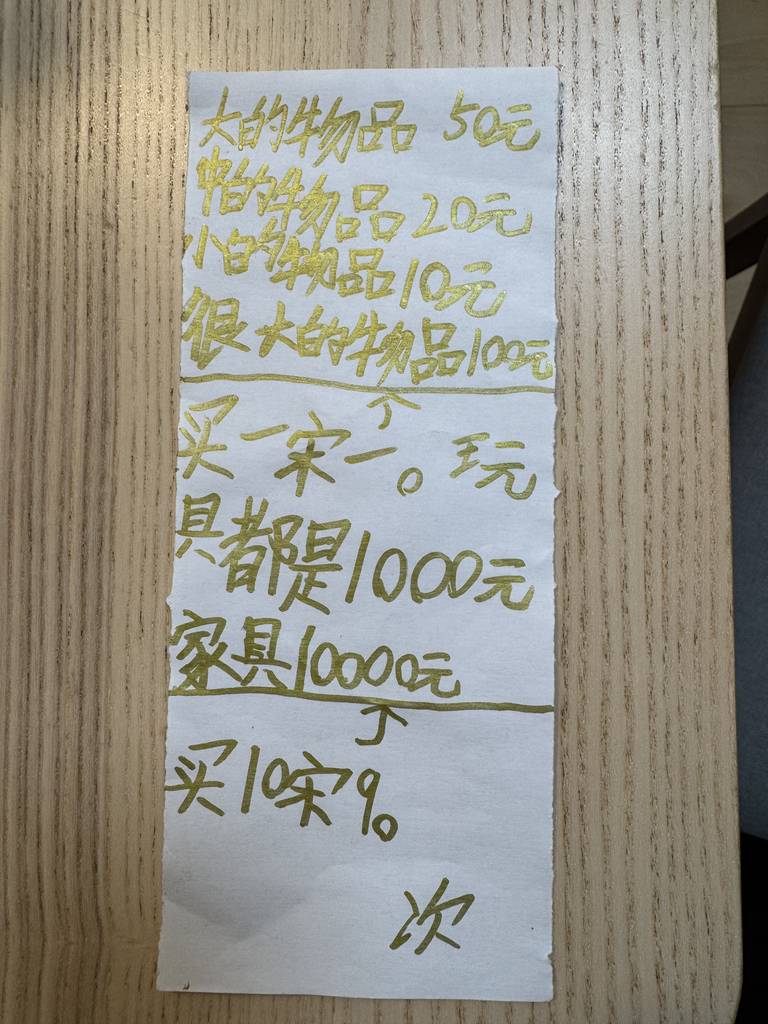 大的物品 50元
中的物品20元
小的物品10元
很大的物品100元
↑
买一宋一。玩
具都是1000元
家具10000元
↑
买10宋9。
次